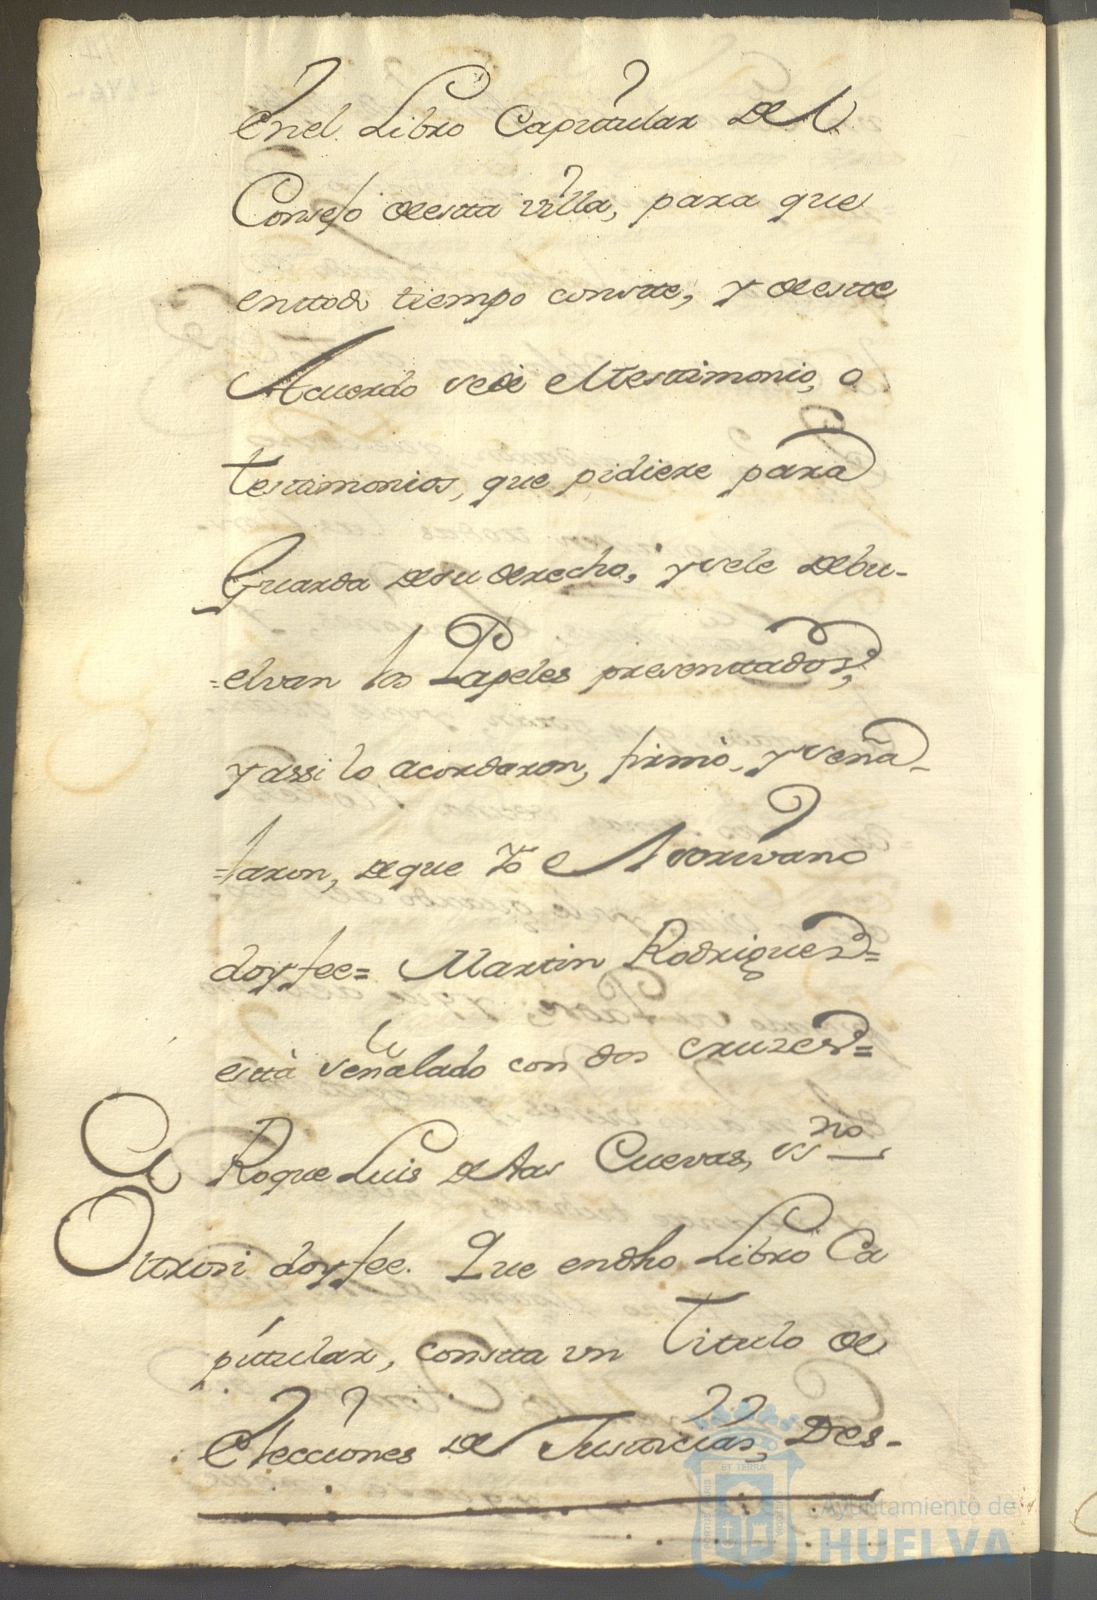 enel Libro Capitular del
Consejo de esta villa, para que
entodo tiempo conste, y de este
Acuerdo se dè el testimonio, o
testimonios, que pidiere para
Guarda de su derecho, y se le debu-
=elvan los Papeles presentados,
y assi lo acordaron, firmò, y seña-
=laron, de que Yo el escrivano
doy fee= Martin Rodriguez=
està señalado con dos cruzes=
Roque Luis de las Cuevas, esno
Otrosi doy fee. Que endho Libro Ca
pitular, consta un Titulo de
Elecciones de Justicias, Des-
ET TERRA
Ayuntamiento de
HUELVA